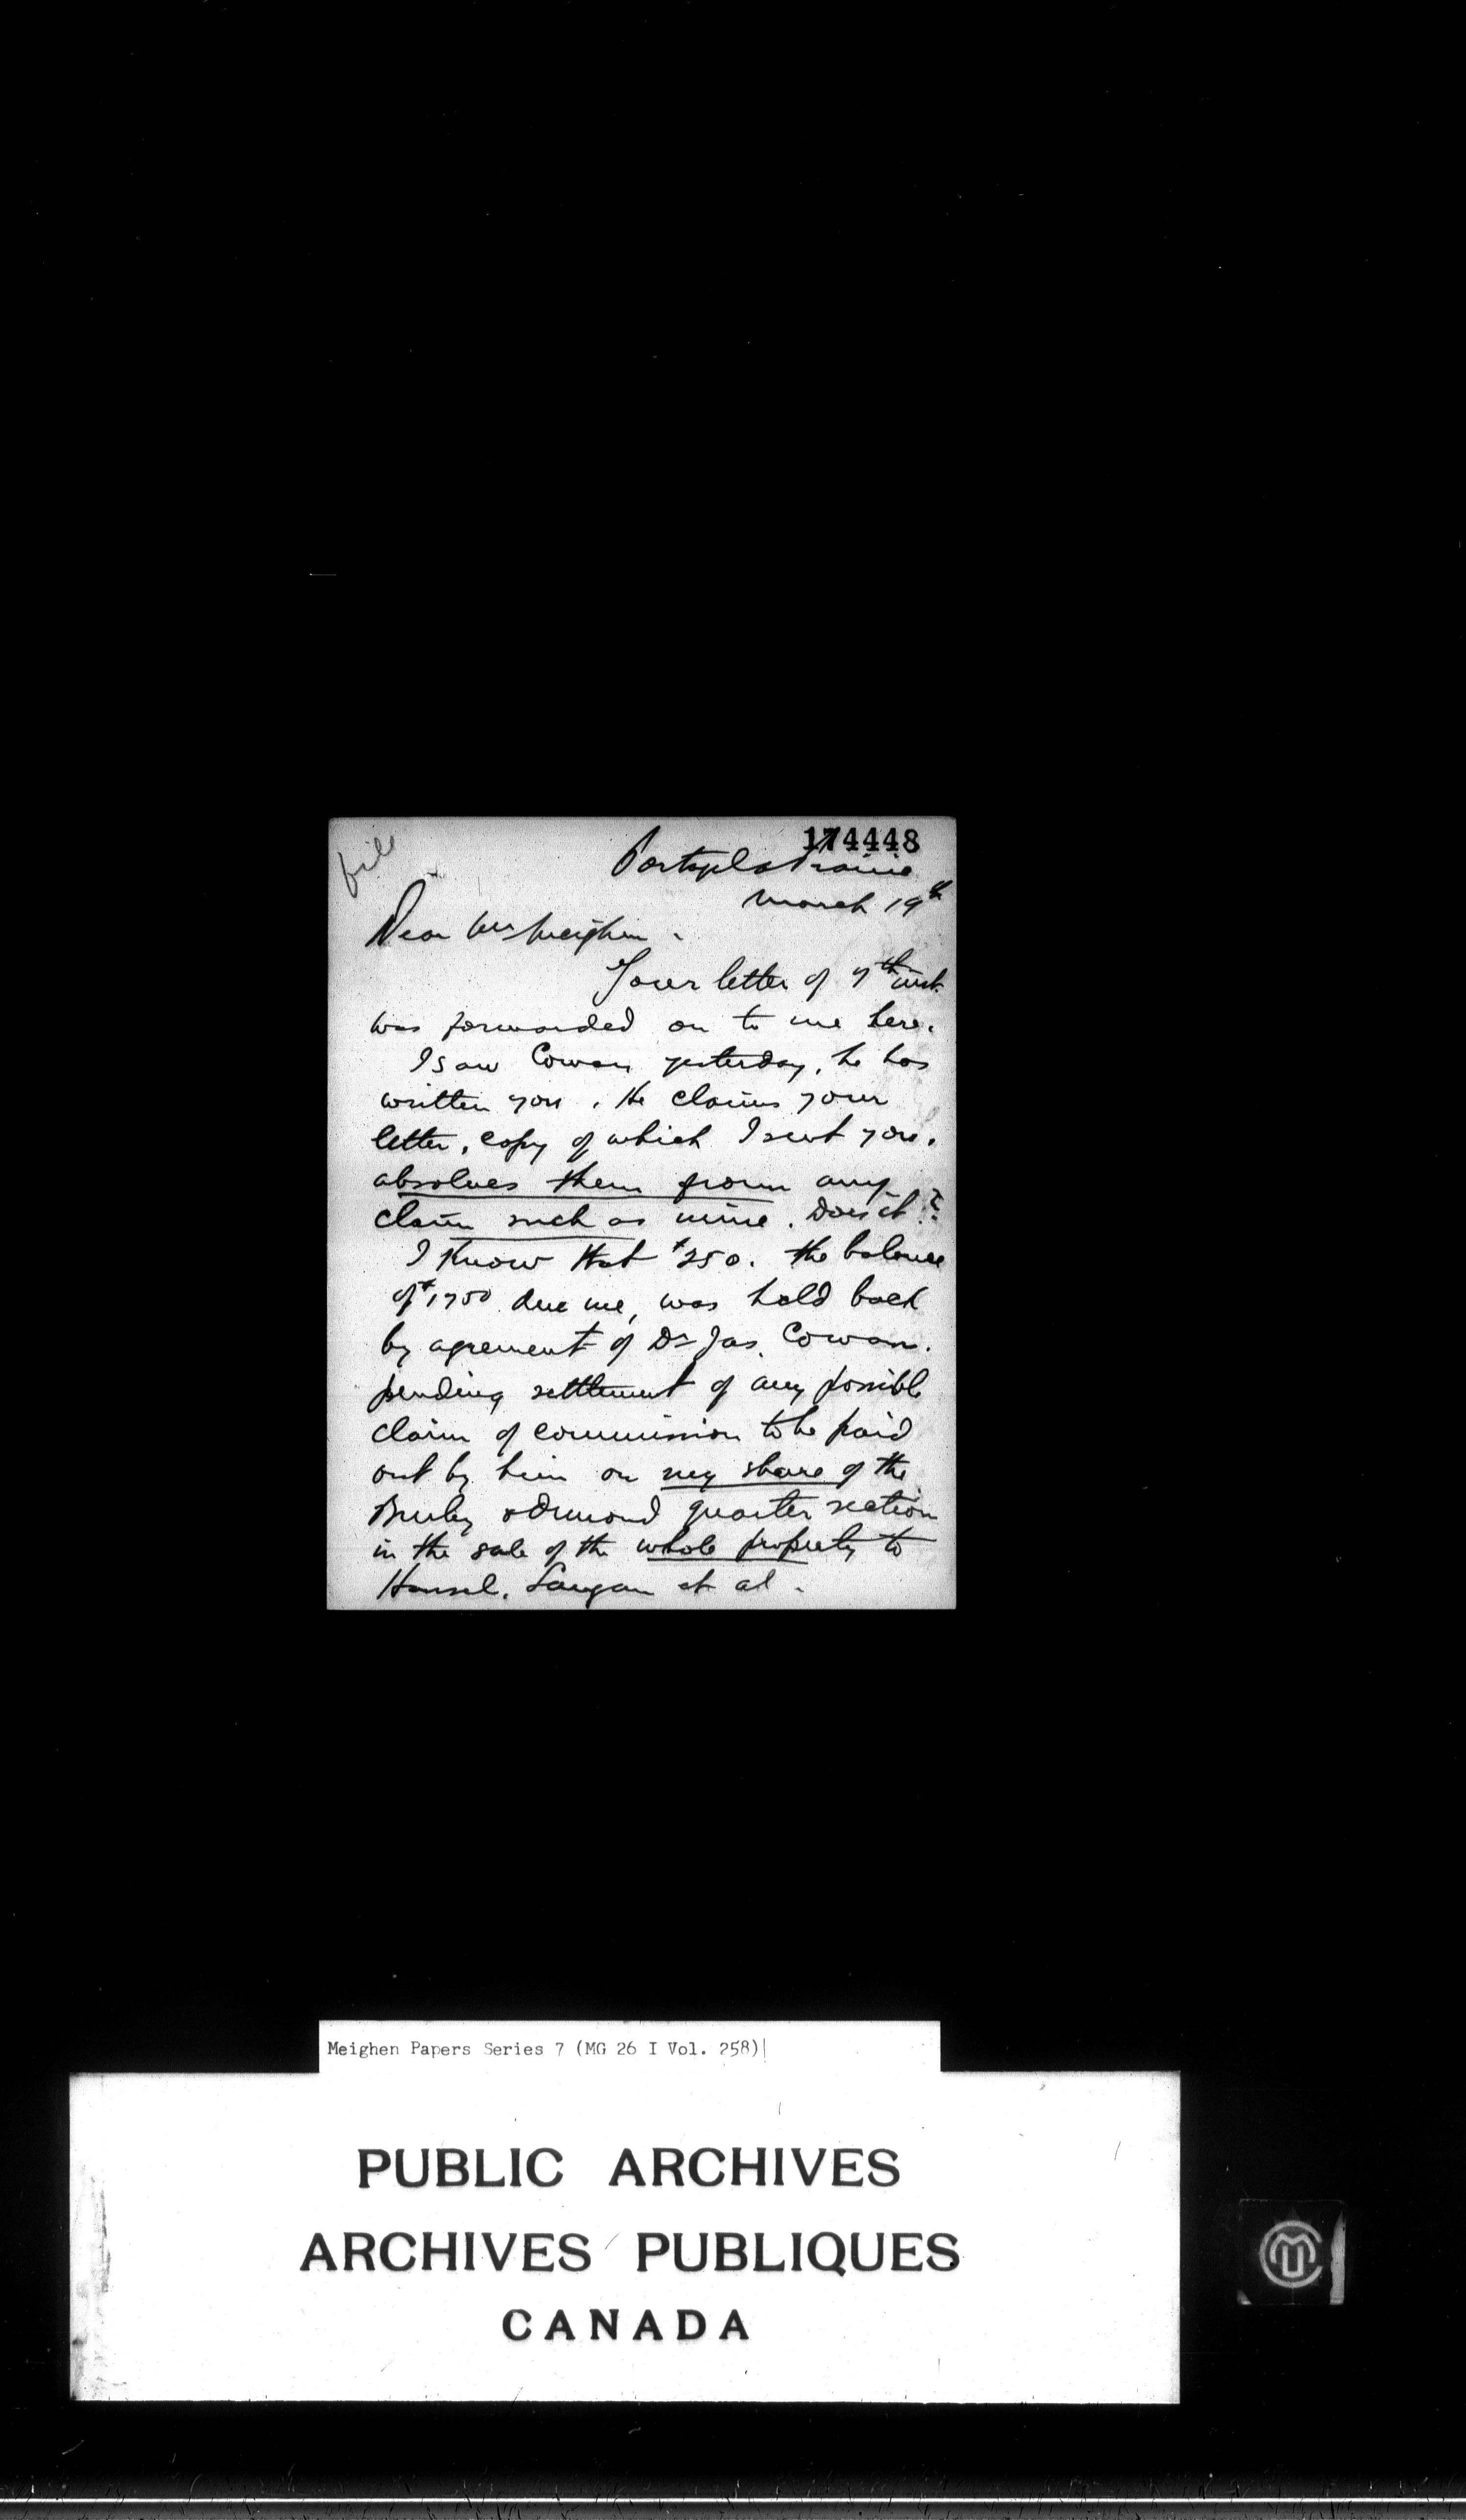 174448
file
Portage la Prairie
March 19th
Dear Mr Meighen.
Your letter of 7th inst.
was forwarded on to me here.
I saw Cowan yesterday, he has
written you. He claims your
letter, copy of which I sent you,
absolves them from any
claim such as mine. Does it?
I know that $250. the balance
of $1750 due me, was held back
by agrement of Dr Jas. Cowan.
pending settlement of any possible
claim of commission to be paid
out by him on my share of the
quarter section
in the sale of the whole property to
et al.
Meighen Papers Series 7 (MG 26 I Vol. 258)
PUBLIC ARCHIVES
ARCHIVES PUBLIQUES
CANADA